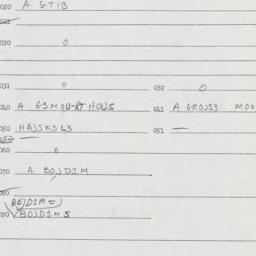 020 A STIB
021
030 0
031 0 032 0
040 A GSMOU-AT HOUS 041 A GROUS3 MOU
050 HAJSK3L3 051 —
052 —
060 0
070 A BOJD1M
080
BEJD1M =
090 BOJD1MS